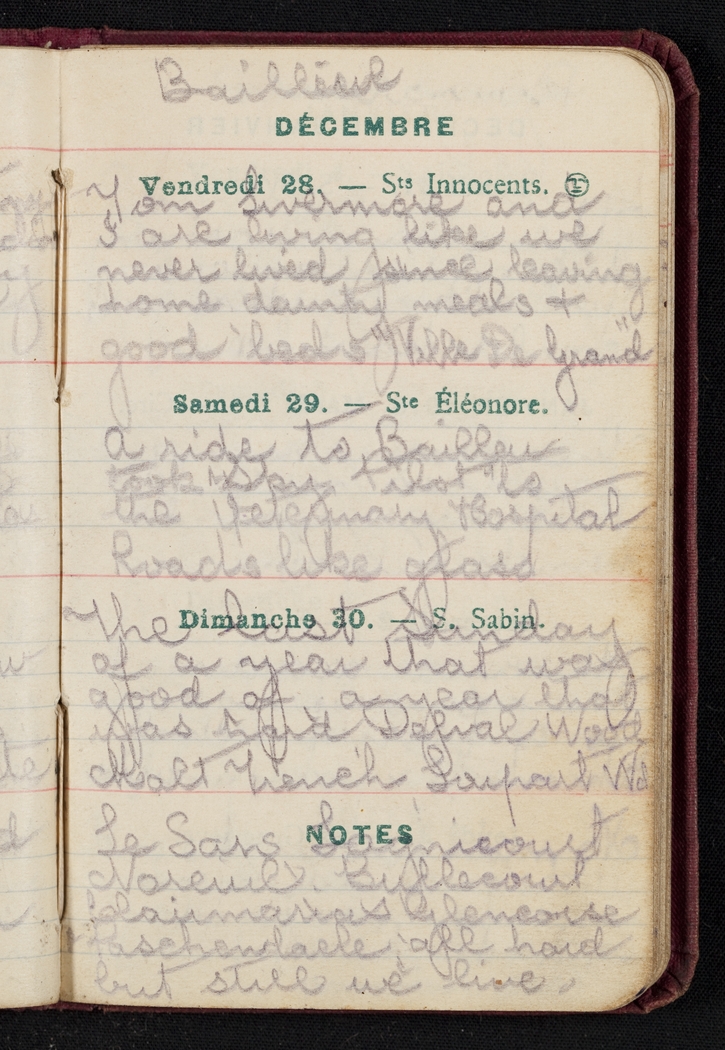 Bailleul
DÉCEMBRE
Vendredi 28. — Sts Innocents.
Tom Livermore and
I are living like we
never lived since leaving
home dainty meals +
good beds "Ville De Grand"
Samedi 29. — Ste Éléonore.
A ride to Bailleu
took "Sky Pilot" to
the Veteginary Hospital
Roads like glass
Dimanche 30. — S. Sabin.
The last Sunday
of a year that was
good of a year that
was hard Delval Wood
Malt Trench Loupart Wd
NOTES
Le Sars Lagnicourt
Noreuil. Bullecourt
Glencorse
Paschendaele all hard
but still we live.